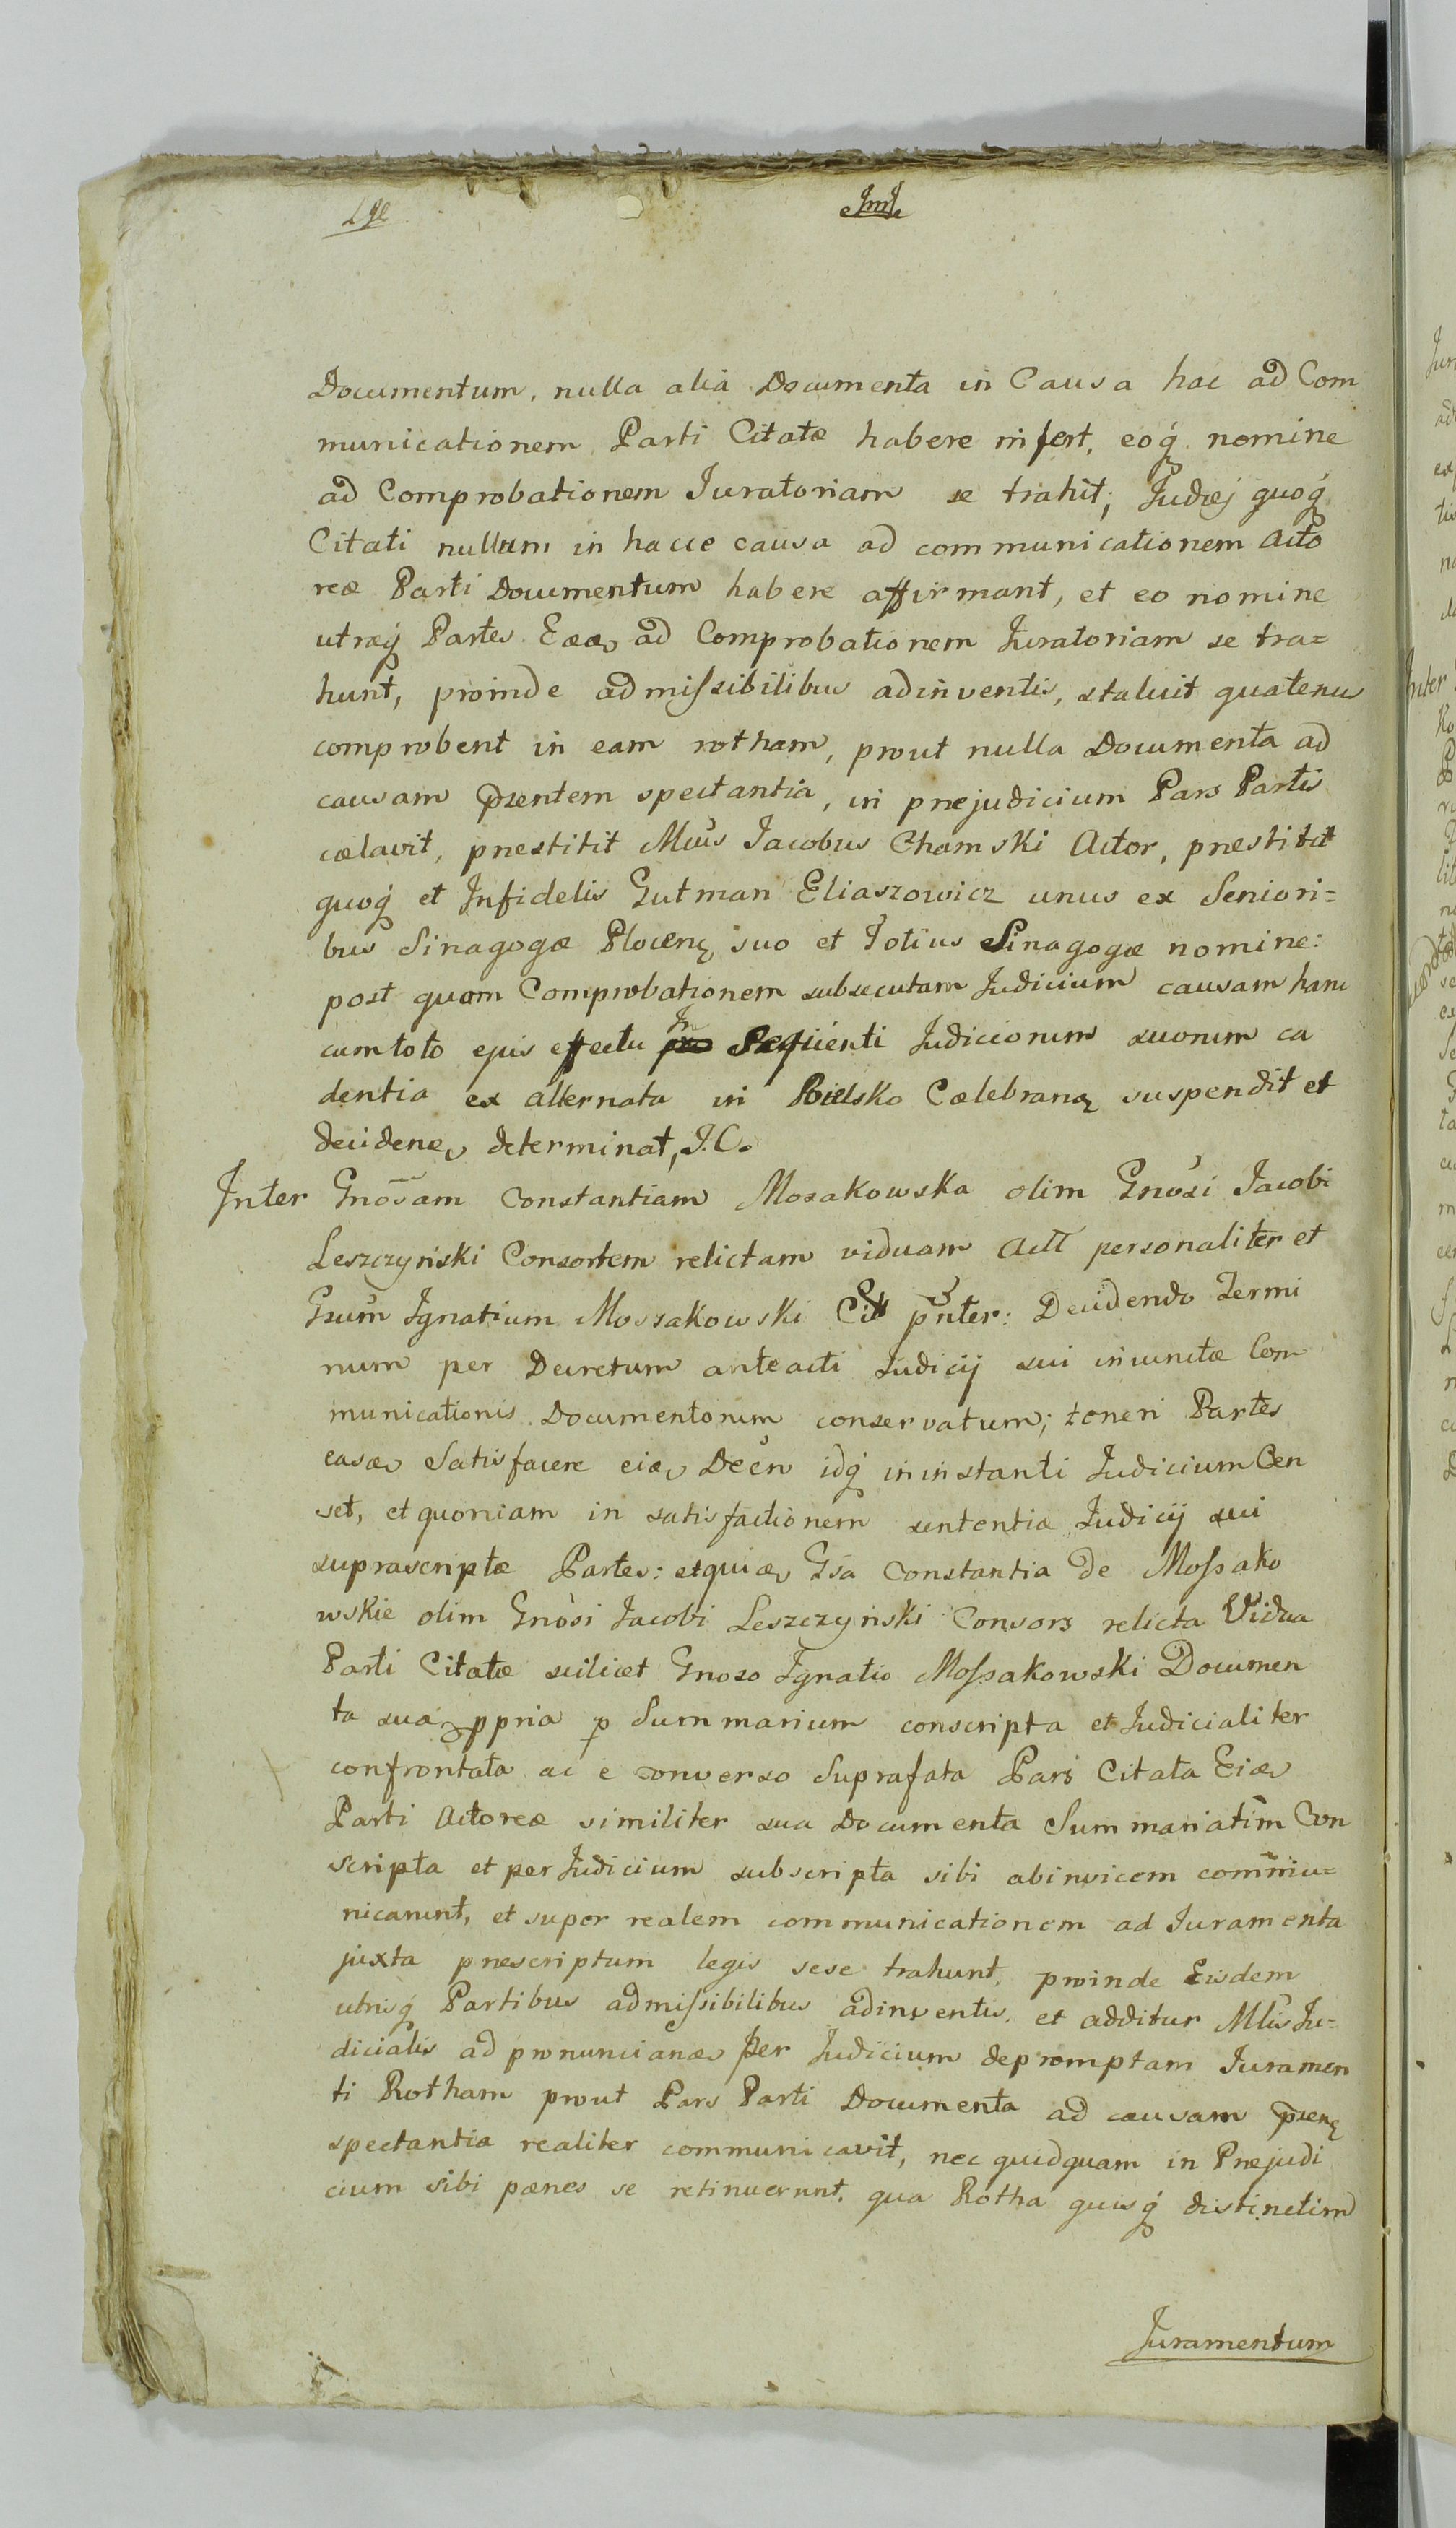 Documentum, nulla alia Documenta in Causa hac ad Com
municationem Parti Citatæ habere infert, eoq́ nomine
ad Comprobationem Juratoriam se trahit; Judæj quoq́
Citati nullum in hacce causa ad communicationem Acto
reæ Parti Documentum habere affirmant, et eo nomine
utræq́ Partes Eææ ad Comprobationem Juratoriam se tra=
hunt, proinde admissibilibus adinventis, statuit quatenus
comprobent in eam rotham, prout nulla Documenta ad
causam pzentem spectantia, in præjudicium Pars Partis
cælavit, præstitit Mcus Jacobus Chamski Actor, præstitit
quoq́ et Infidelis Gutman Eliaszowicz unus ex Seniori=
bus Sinagogæ Plocenę suo et Totius Sinagogæ nomine:
post quam Comprobationem subsecutam Judicium causam hanc
cum toto ejus effectu In Sequenti Judiciorum suorum ca
dentia ex alternata in Bielsko Cælebraną suspendit et
decidenæ determinat, J.C.
Inter Gnosam Constantiam Mosakowska olim Gnosi Jacobi
Leszczyński Consortem relictam viduam Act personaliter et
Gsum Ignatium Mossakowski Cit pnter: Decidendo Termi
num per Decretum anteacti Judicij sui iniunctæ Com
municationis Documentorum conservatum; teneri Partes
easæ Satisfacere eiæ Decr̃ idq́ in instanti Judicium Cen
set, et quoniam in satisfactionem sententiæ Judicij sui
suprascriptæ Partes: etquiæ Gsa Constantia de Mossako
wskie olim Gnosi Jacobi Leszczyński Consors relicta Vidua
Parti Citatæ scilicet Gnoso Ignatio Mossakowski Documen
ta sua ppria p Summarium conscripta et Judicialiter
confrontata ac e converso Suprafata Pars Citata Eiæ
Parti Actoreæ similiter sua Documenta Summariatim Con
scripta et per Judicium subscripta sibi abinvicem commu=
nicarunt, et super realem communicationem ad Juramenta
juxta præscriptum legis sese trahunt, proinde Eisdem
utrisq́ Partibus admissibilibus adinventis, et additur Mlis Ju=
dicialis ad pronuncianæ per Judicium depromptam Juramen
ti Rotham prout Pars Parti Documenta ad causam pzenę
spectantia realiter communicavit, nec quidquam in Præjudi
cium sibi pænes se retinuerunt, qua Rotha quisq́ distinctim
Juramentum